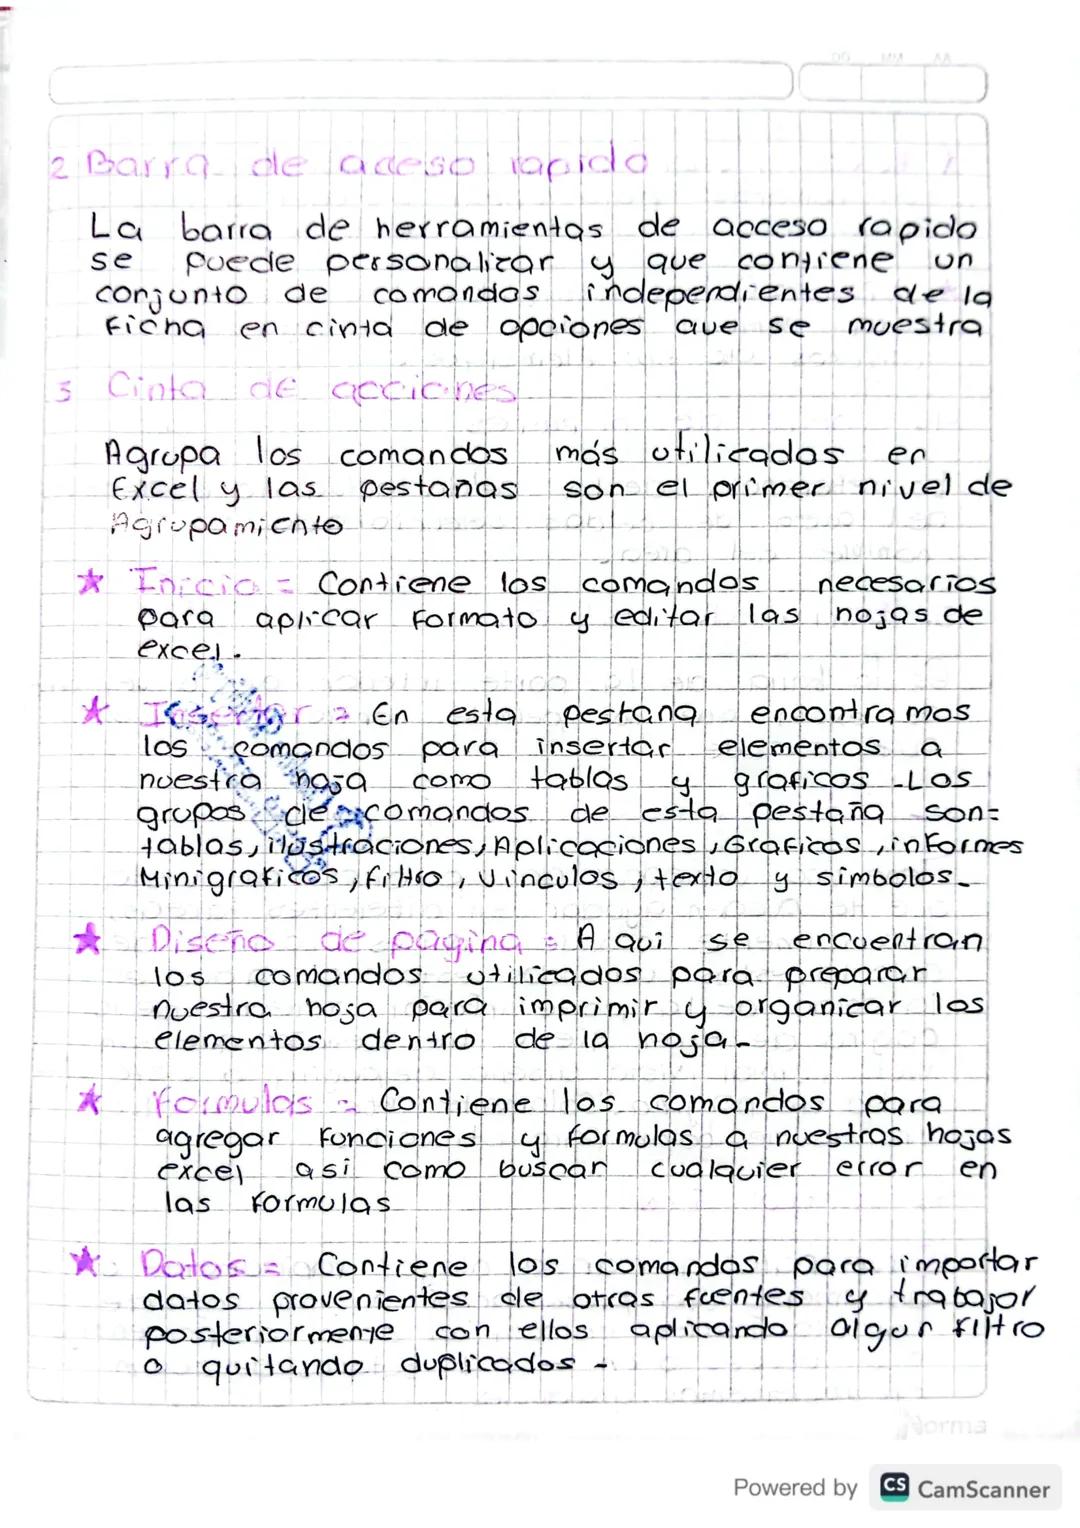 DD MM AA
2 Barra de acceso rapido
La barra de herramientas de acceso rapido
se puede personalizar y que contiene un
conjunto de comandos independientes de la
ficha en cinta de opciones que se muestra
3 Cinta de acciones
Agrupa los comandos más utilizados en
Excel y las pestañas son el primer nivel de
Agrupamiento
Inicio = Contiene los comandos necesarios
para aplicar formato y editar las hojas de
excel.
Insertar = En esta pestaña encontramos
los comandos para insertar elementos a
nuestra hoja como tablas y graficos - Los
grupos de comandos de esta pestaña son=
tablas, ilustraciones, Aplicaciones, Graficos, informes
Minigraficos, filtro, Vinculos, texto y simbolos-
Diseño de pagina = A qui se encuentran
los comandos utilizados para preparar
nuestra hoja para imprimir y organizar los
elementos dentro de la hoja-
Formulas = Contiene los comandos para
agregar funciones y formulas a nuestras hojas
excel asi como buscar cualquier error en
las formulas
Datos = Contiene los comandos para importar
datos provenientes de otras fuentes y trabajar
posteriormente con ellos aplicando algun filtro
o quitando duplicados -
Norma
Powered by CS CamScanner